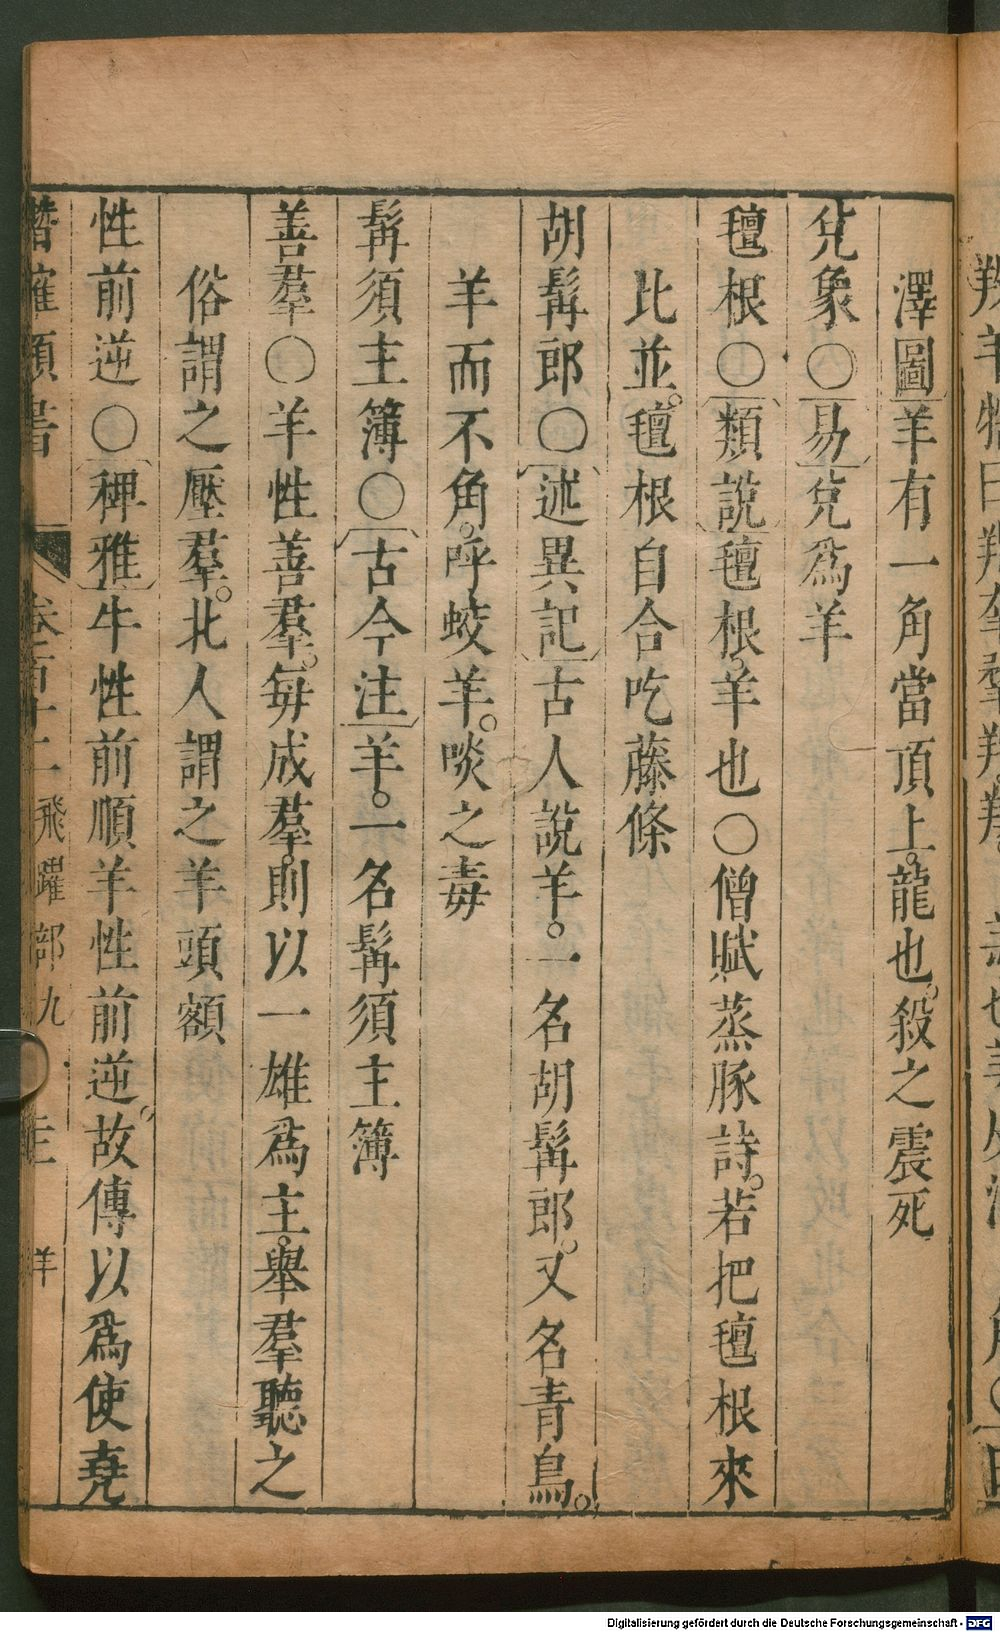 澤圖羊有一角當頂上。龍也。殺之震死
兊象○易兊爲羊
氊根○類說氊根。羊也○僧賦蒸豚詩。若把氊根來
比並。氊根自合吃藤條
胡髯郎○述異記古人說羊。一名胡髯郎。又名青烏。
羊而不角。呼蛟羊。啖之毒
髯須主簿○古今注羊。一名髯須主簿
善羣○羊性善羣。每成羣。則以一雄爲主。舉羣聽之
俗謂之壓羣。北人謂之羊頭額
性前逆○稗雅牛性前順羊性前逆。故傳以爲使堯
潛確類書 卷百十一 飛躍部九 羊
Digitalisierung gefördert durch die Deutsche Forschungsgemeinschaft - DFG